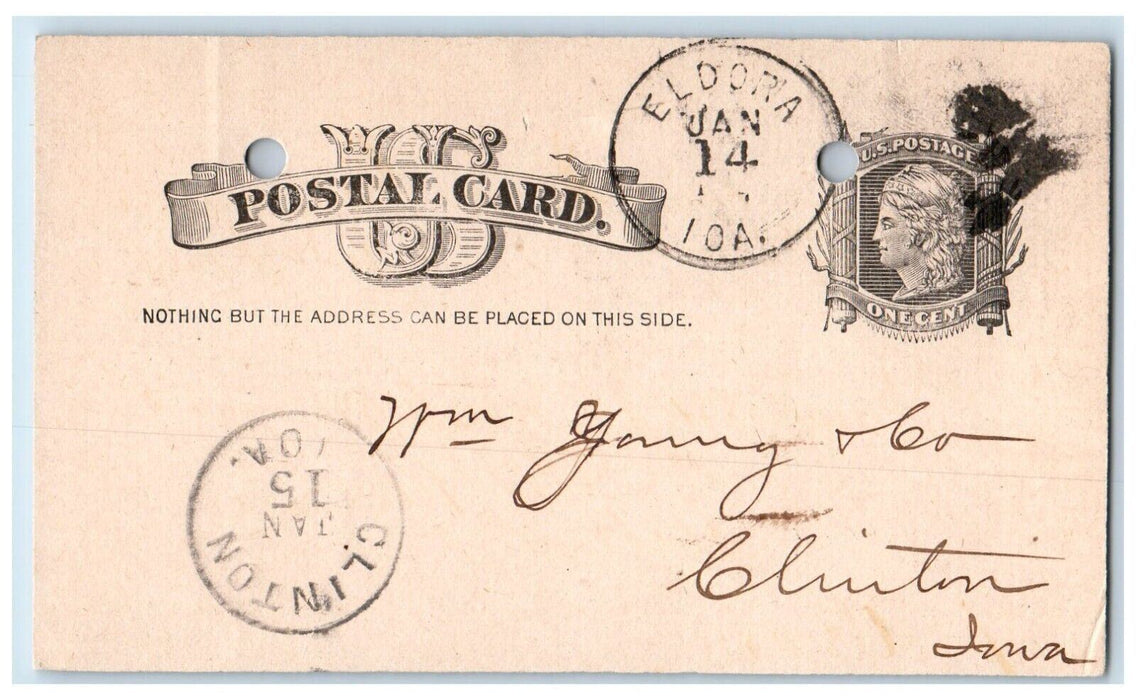 US
POSTAL CARD.
NOTHING BUT THE ADDRESS CAN BE PLACED ON THIS SIDE.
ELDORA
JAN
14
IOA.
U.S. POSTAGE
ONE CENT
Wm Young & Co
Clinton
Iowa
CLINTON
JAN
15
IOA.